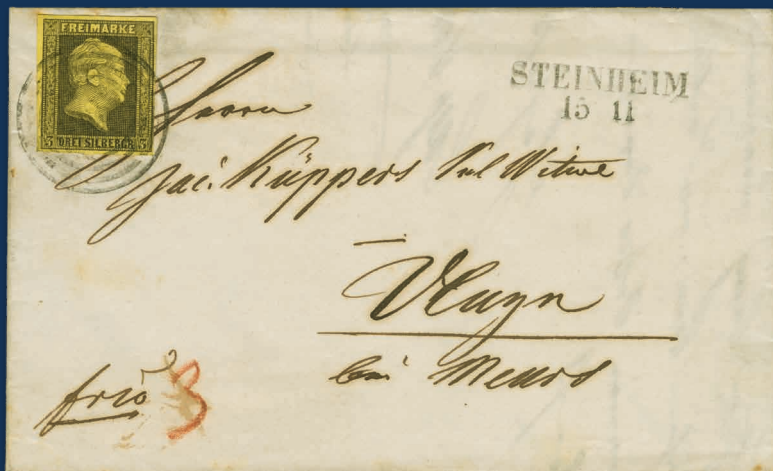 FREIMARKE
3 DREI SILBERGR. 3
STEINHEIM
15 11
Herrn
Jac. Küppers Sel Witwe
Vluyn
bei Meurs
frco
3